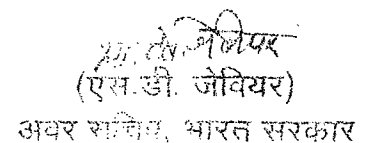 (एस.डी. जेवियर)
अवर सचिव, भारत सरकार